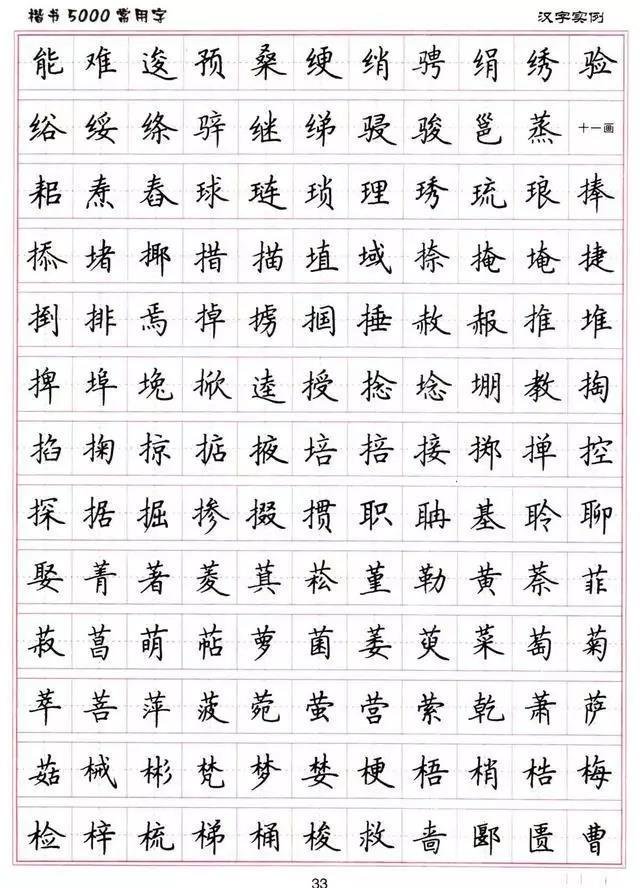 楷书5000常用字 汉字实例
能难逡预桑绠绡骋绢绣验
绤绥绦骍继绨骎骏邕烝十一画
耜焘舂球琏琐理琇琉琅捧
掭堵揶措描埴域捺掩埯捷
捯排焉掉掳掴捶赦赧推堆
捭埠堍掀逵授捻埝堋教掏
掐掬掠掂掖培掊接掷掸控
探据掘掺掇掼职聃基聆聊
娶菁著菱萁菘堇勒黄萘菲
菽菖萌萜萝菌萎萸菜萄菊
萃菩萍菠菀萤营萦乾萧萨
菇械彬梵梦婪梗梧梢梏梅
检梓梳梯桶梭救啬郾匮曹
33